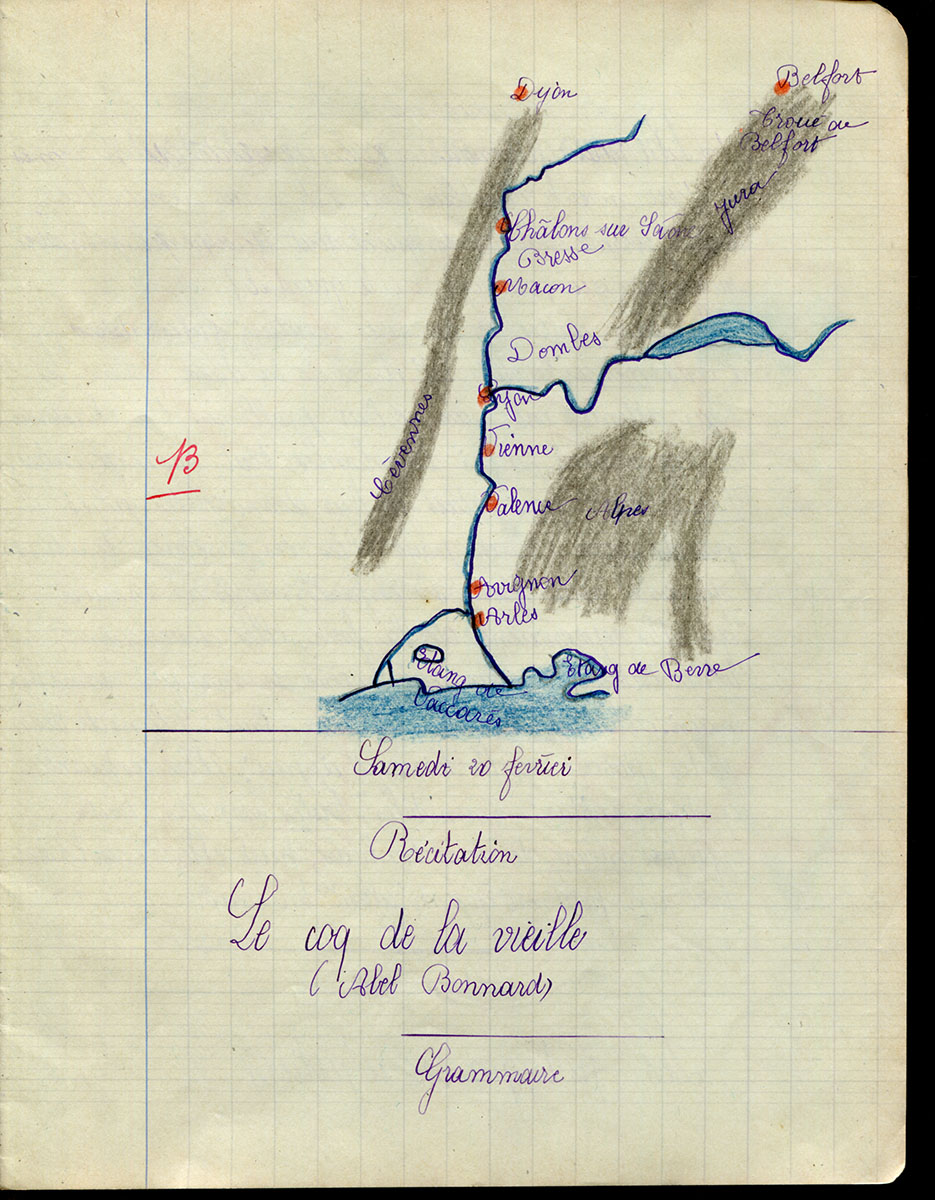 Dijon
Belfort
Troué de
Belfort
Jura
Châlons sur Saône
Bresse
Macon
Dombes
Lyon
Cévennes
B
Vienne
Valence
Alpes
Avignon
Arles
Etang de
Vaccarès
Etang de Berre
Samedi 20 février
Récitation
Le coq de la vieille
(Abel Bonnard)
Grammaire